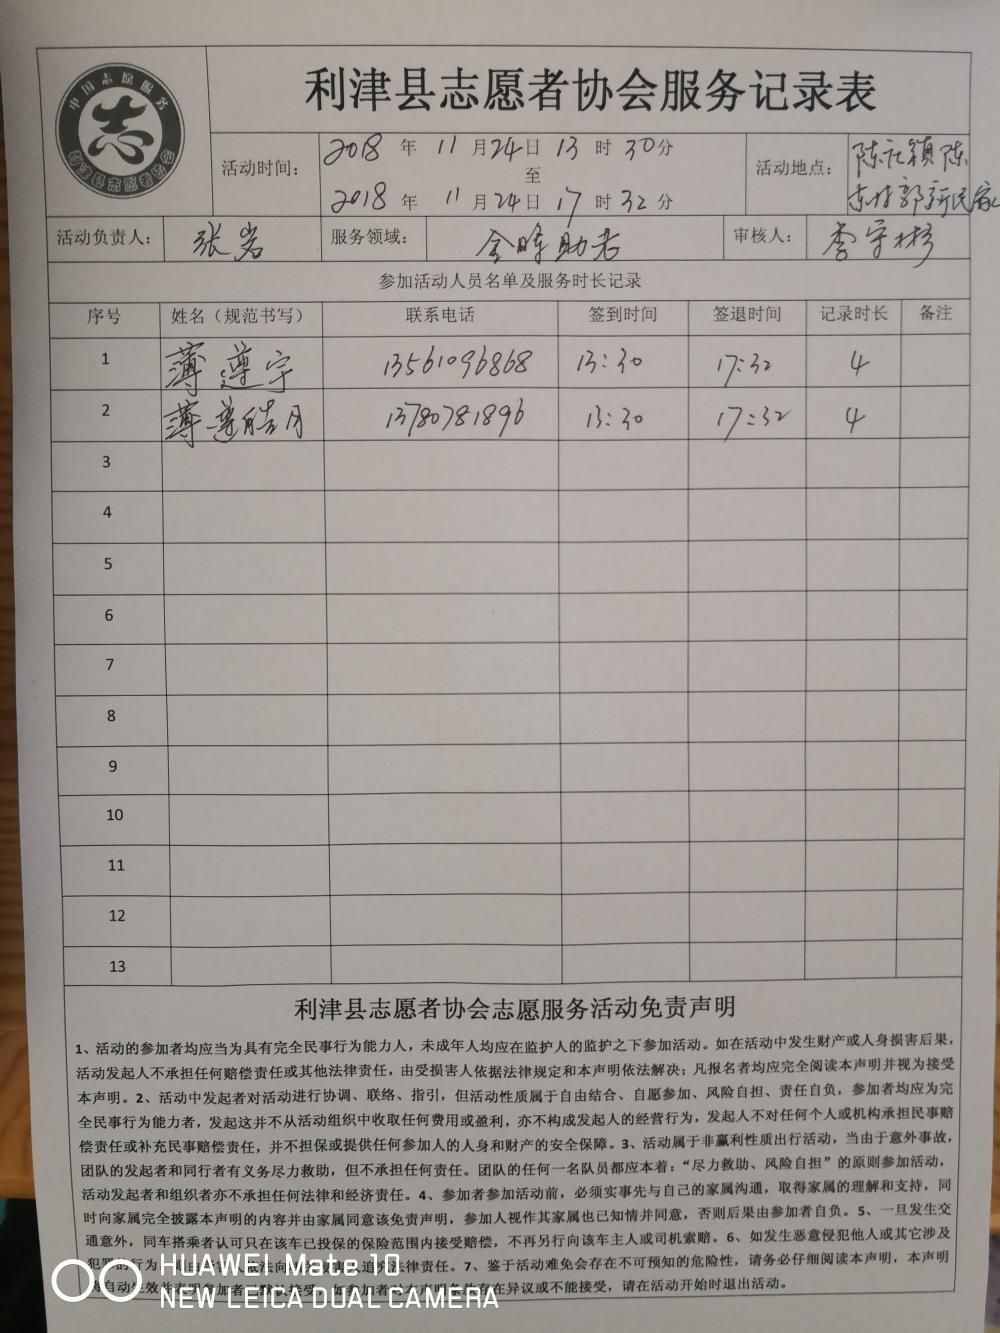 中国志愿服务
志
利津县志愿者协会
利津县志愿者协会服务记录表
活动时间：
2018 年 11 月 24 日 13 时 30 分
至
2018 年 11 月 24 日 17 时 32 分
活动地点：
陈庄镇陈
家
活动负责人： 张岩 服务领域： 金晖助老 审核人： 李守彬
参加活动人员名单及服务时长记录
序号 姓名（规范书写） 联系电话 签到时间 签退时间 记录时长 备注
1 薄遵宇 13561096868 13:30 17:32 4
2 薄 皓月 13780781896 13:30 17:32 4
3
4
5
6
7
8
9
10
11
12
13
利津县志愿者协会志愿服务活动免责声明
1、活动的参加者均应当为具有完全民事行为能力人，未成年人均应在监护人的监护之下参加活动。如在活动中发生财产或人身损害后果，
活动发起人不承担任何赔偿责任或其他法律责任，由受损害人依据法律规定和本声明依法解决；凡报名者均应完全阅读本声明并视为接受
本声明。2、活动中发起者对活动进行协调、联络、指引，但活动性质属于自由结合、自愿参加、风险自担、责任自负，参加者均应为完
全民事行为能力者，发起这并不从活动组织中收取任何费用或盈利，亦不构成发起人的经营行为，发起人不对任何个人或机构承担民事赔
偿责任或补充民事赔偿责任，并不担保或提供任何参加人的人身和财产的安全保障。3、活动属于非赢利性质出行活动，当由于意外事故，
团队的发起者和同行者有义务尽力救助，但不承担任何责任。团队的任何一名队员都应本着：“尽力救助、风险自担”的原则参加活动，
活动发起者和组织者亦不承担任何法律和经济责任。4、参加者参加活动前，必须实事先与自己的家属沟通，取得家属的理解和支持，同
时向家属完全披露本声明的内容并由家属同意该免责声明，参加人视作其家属也已知情并同意，否则后果由参加者自负。5、一旦发生交
通意外，同车搭乘者认可只在该车已投保的保险范围内接受赔偿，不再另行向该车主人或司机索赔。6、如发生恶意侵犯他人或其它涉及
犯罪的行为 法向 追究法律责任。7、鉴于活动难免会存在不可预知的危险性，请务必仔细阅读本声明，本声明
自动生效 参加者 接受，如参加者对本声明条款存在异议或不能接受，请在活动开始时退出活动。
HUAWEI Mate 10
NEW LEICA DUAL CAMERA